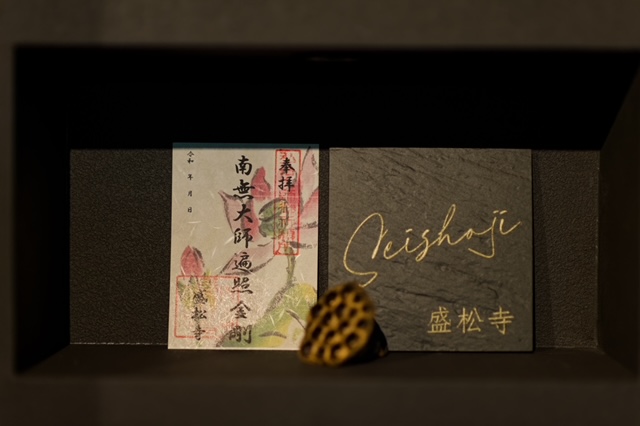 奉拝
南無大師遍照金剛
盛松寺
令和 年 月 日
Seishoji
盛松寺